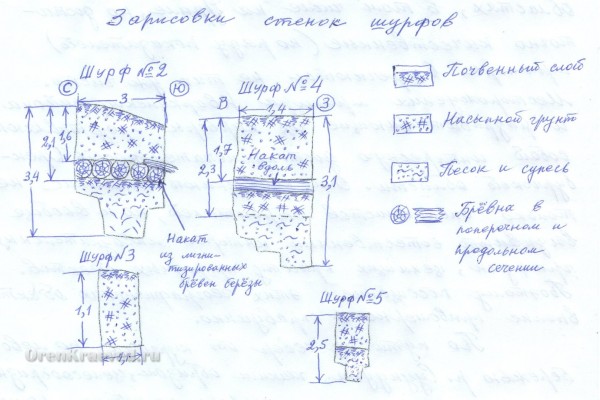 Зарисовки стенок шурфов
Шурф №2
С
3
Ю
1,6
2,1
3,4
Накат
из лигни-
тизированных
брёвен берёзы
Шурф №4
В
1,4
З
1,7
2,3
3,1
Накат
вдоль
Почвенный слой
Насыпной грунт
Песок и супесь
Брёвна в
поперечном и
продольном
сечении
Шурф №3
1,1
Шурф №5
2,5
OrenKraeved.ru